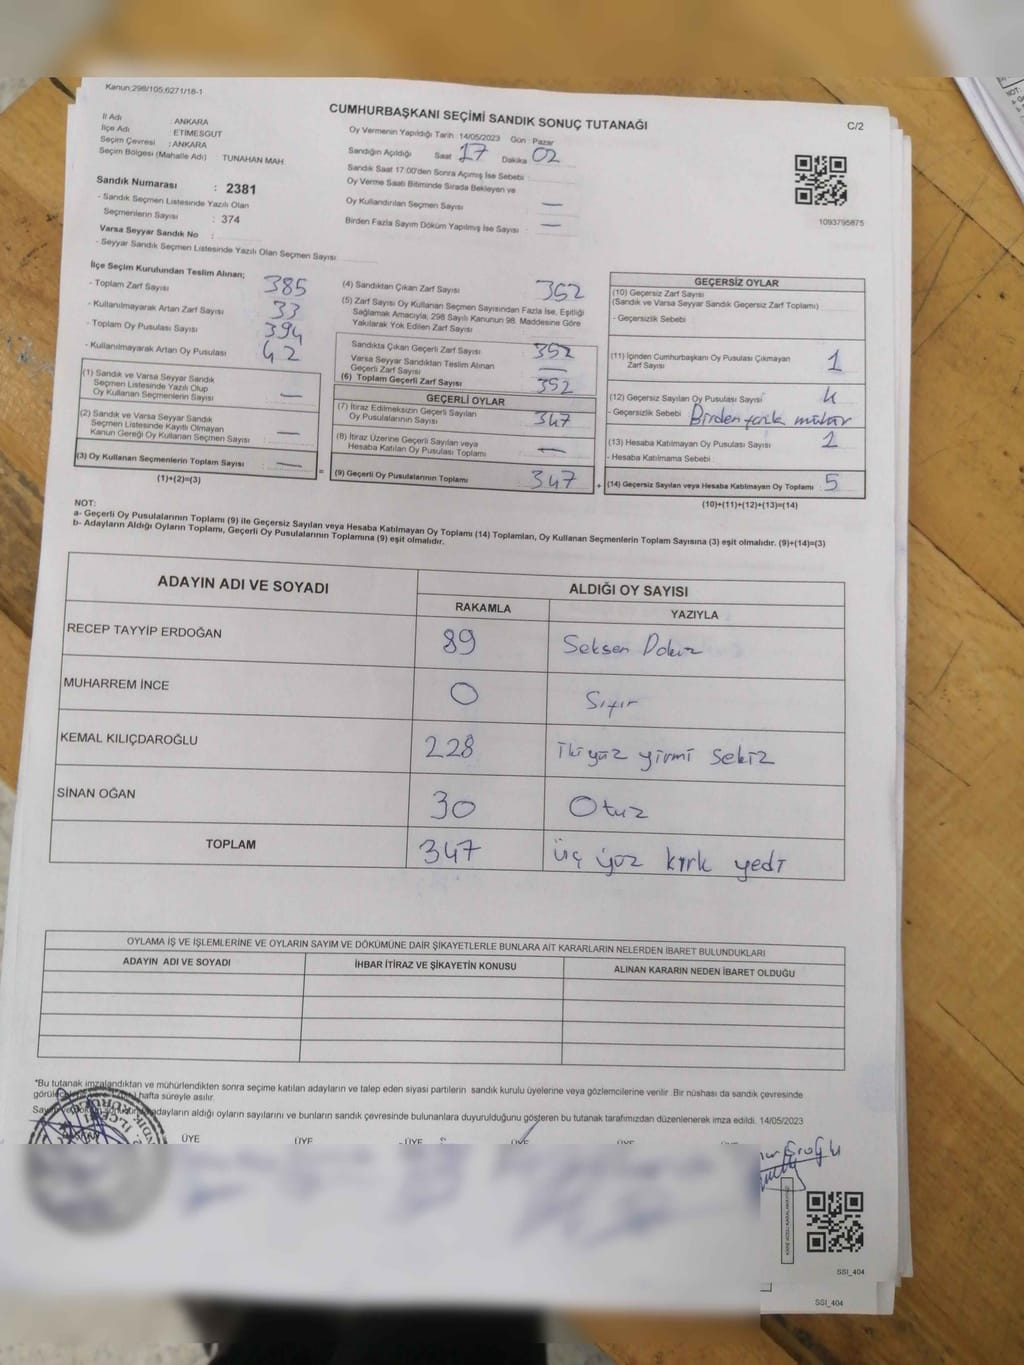 Kanun:298/105;6271/18-1
CUMHURBAŞKANI SEÇİMİ SANDIK SONUÇ TUTANAĞI
C/2
İl Adı : ANKARA
İlçe Adı : ETİMESGUT
Seçim Çevresi : ANKARA
Seçim Bölgesi (Mahalle Adı) TUNAHAN MAH
Sandık Numarası : 2381
- Sandık Seçmen Listesinde Yazılı Olan
Seçmenlerin Sayısı : 374
Varsa Seyyar Sandık No :
- Seyyar Sandık Seçmen Listesinde Yazılı Olan Seçmen Sayısı
Oy Vermenin Yapıldığı Tarih :14/05/2023 Gün : Pazar
Sandığın Açıldığı Saat 17 Dakika 02
Sandık Saat 17:00'den Sonra Açımış İse Sebebi :
Oy Verme Saati Bitiminde Sırada Bekleyen ve
Oy Kullandırılan Seçmen Sayısı —
Birden Fazla Sayım Döküm Yapılmış İse Sayısı : —
1093795875
İlçe Seçim Kurulundan Teslim Alınan;
- Toplam Zarf Sayısı 385
- Kullanılmayarak Artan Zarf Sayısı 33
- Toplam Oy Pusulası Sayısı 394
- Kullanılmayarak Artan Oy Pusulası 42
(1) Sandık ve Varsa Seyyar Sandık
Seçmen Listesinde Yazılı Olup
Oy Kullanan Seçmenlerin Sayısı —
(2) Sandık ve Varsa Seyyar Sandık
Seçmen Listesinde Kayıtlı Olmayan
Kanun Gereği Oy Kullanan Seçmen Sayısı —
(3) Oy Kullanan Seçmenlerin Toplam Sayısı —
(1)+(2)=(3)
=
(4) Sandıktan Çıkan Zarf Sayısı 352
(5) Zarf Sayısı Oy Kullanan Seçmen Sayısından Fazla İse, Eşitliği
Sağlamak Amacıyla, 298 Sayılı Kanunun 98. Maddesine Göre
Yakılarak Yok Edilen Zarf Sayısı
Sandıkta Çıkan Geçerli Zarf Sayısı 352
Varsa Seyyar Sandıktan Teslim Alınan
Geçerli Zarf Sayısı —
(6) Toplam Geçerli Zarf Sayısı 352
GEÇERLİ OYLAR
(7) İtiraz Edilmeksizin Geçerli Sayılan
Oy Pusulalarının Sayısı 347
(8) İtiraz Üzerine Geçerli Sayılan veya
Hesaba Katılan Oy Pusulaları Toplamı —
(9) Geçerli Oy Pusulalarının Toplamı 347
+
GEÇERSİZ OYLAR
(10) Geçersiz Zarf Sayısı
(Sandık ve Varsa Seyyar Sandık Geçersiz Zarf Toplamı)
- Geçersizlik Sebebi
(11) İçinden Cumhurbaşkanı Oy Pusulası Çıkmayan
Zarf Sayısı 1
(12) Geçersiz Sayılan Oy Pusulası Sayısı 4
- Geçersizlik Sebebi Birden fazla mühür
(13) Hesaba Katılmayan Oy Pusulası Sayısı
- Hesaba Katılmama Sebebi
(14) Geçersiz Sayılan veya Hesaba Katılmayan Oy Toplamı 5
(10)+(11)+(12)+(13)=(14)
NOT:
a- Geçerli Oy Pusulalarının Toplamı (9) ile Geçersiz Sayılan veya Hesaba Katılmayan Oy Toplamı (14) Toplamları, Oy Kullanan Seçmenlerin Toplam Sayısına (3) eşit olmalıdır. (9)+(14)=(3)
b- Adayların Aldığı Oyların Toplamı, Geçerli Oy Pusulalarının Toplamına (9) eşit olmalıdır.
ADAYIN ADI VE SOYADI
ALDIĞI OY SAYISI
RAKAMLA YAZIYLA
RECEP TAYYİP ERDOĞAN 89 Seksen Dokuz
MUHARREM İNCE 0 Sıfır
KEMAL KILIÇDAROĞLU 228 iki yüz yirmi sekiz
SİNAN OĞAN 30 Otuz
TOPLAM 347 üç yüz kırk yedi
OYLAMA İŞ VE İŞLEMLERİNE VE OYLARIN SAYIM VE DÖKÜMÜNE DAİR ŞİKAYETLERLE BUNLARA AİT KARARLARIN NELERDEN İBARET BULUNDUKLARI
ADAYIN ADI VE SOYADI İHBAR İTİRAZ VE ŞİKAYETİN KONUSU ALINAN KARARIN NEDEN İBARET OLDUĞU
"Bu tutanak imzalandıktan ve mühürlendikten sonra seçime katılan adayların ve talep eden siyasi partilerin sandık kurulu üyelerine veya gözlemcilerine verilir. Bir nüshası da sandık çevresinde
hafta süreyle asılır.
adayların aldığı oyların sayılarını ve bunların sandık çevresinde bulunanlara duyurulduğunu gösteren bu tutanak tarafımızdan düzenlenerek imza edildi. 14/05/2023
ÜYE ÜYE ÜYE ÜYE ÜYE
SSI_404
SSI_404